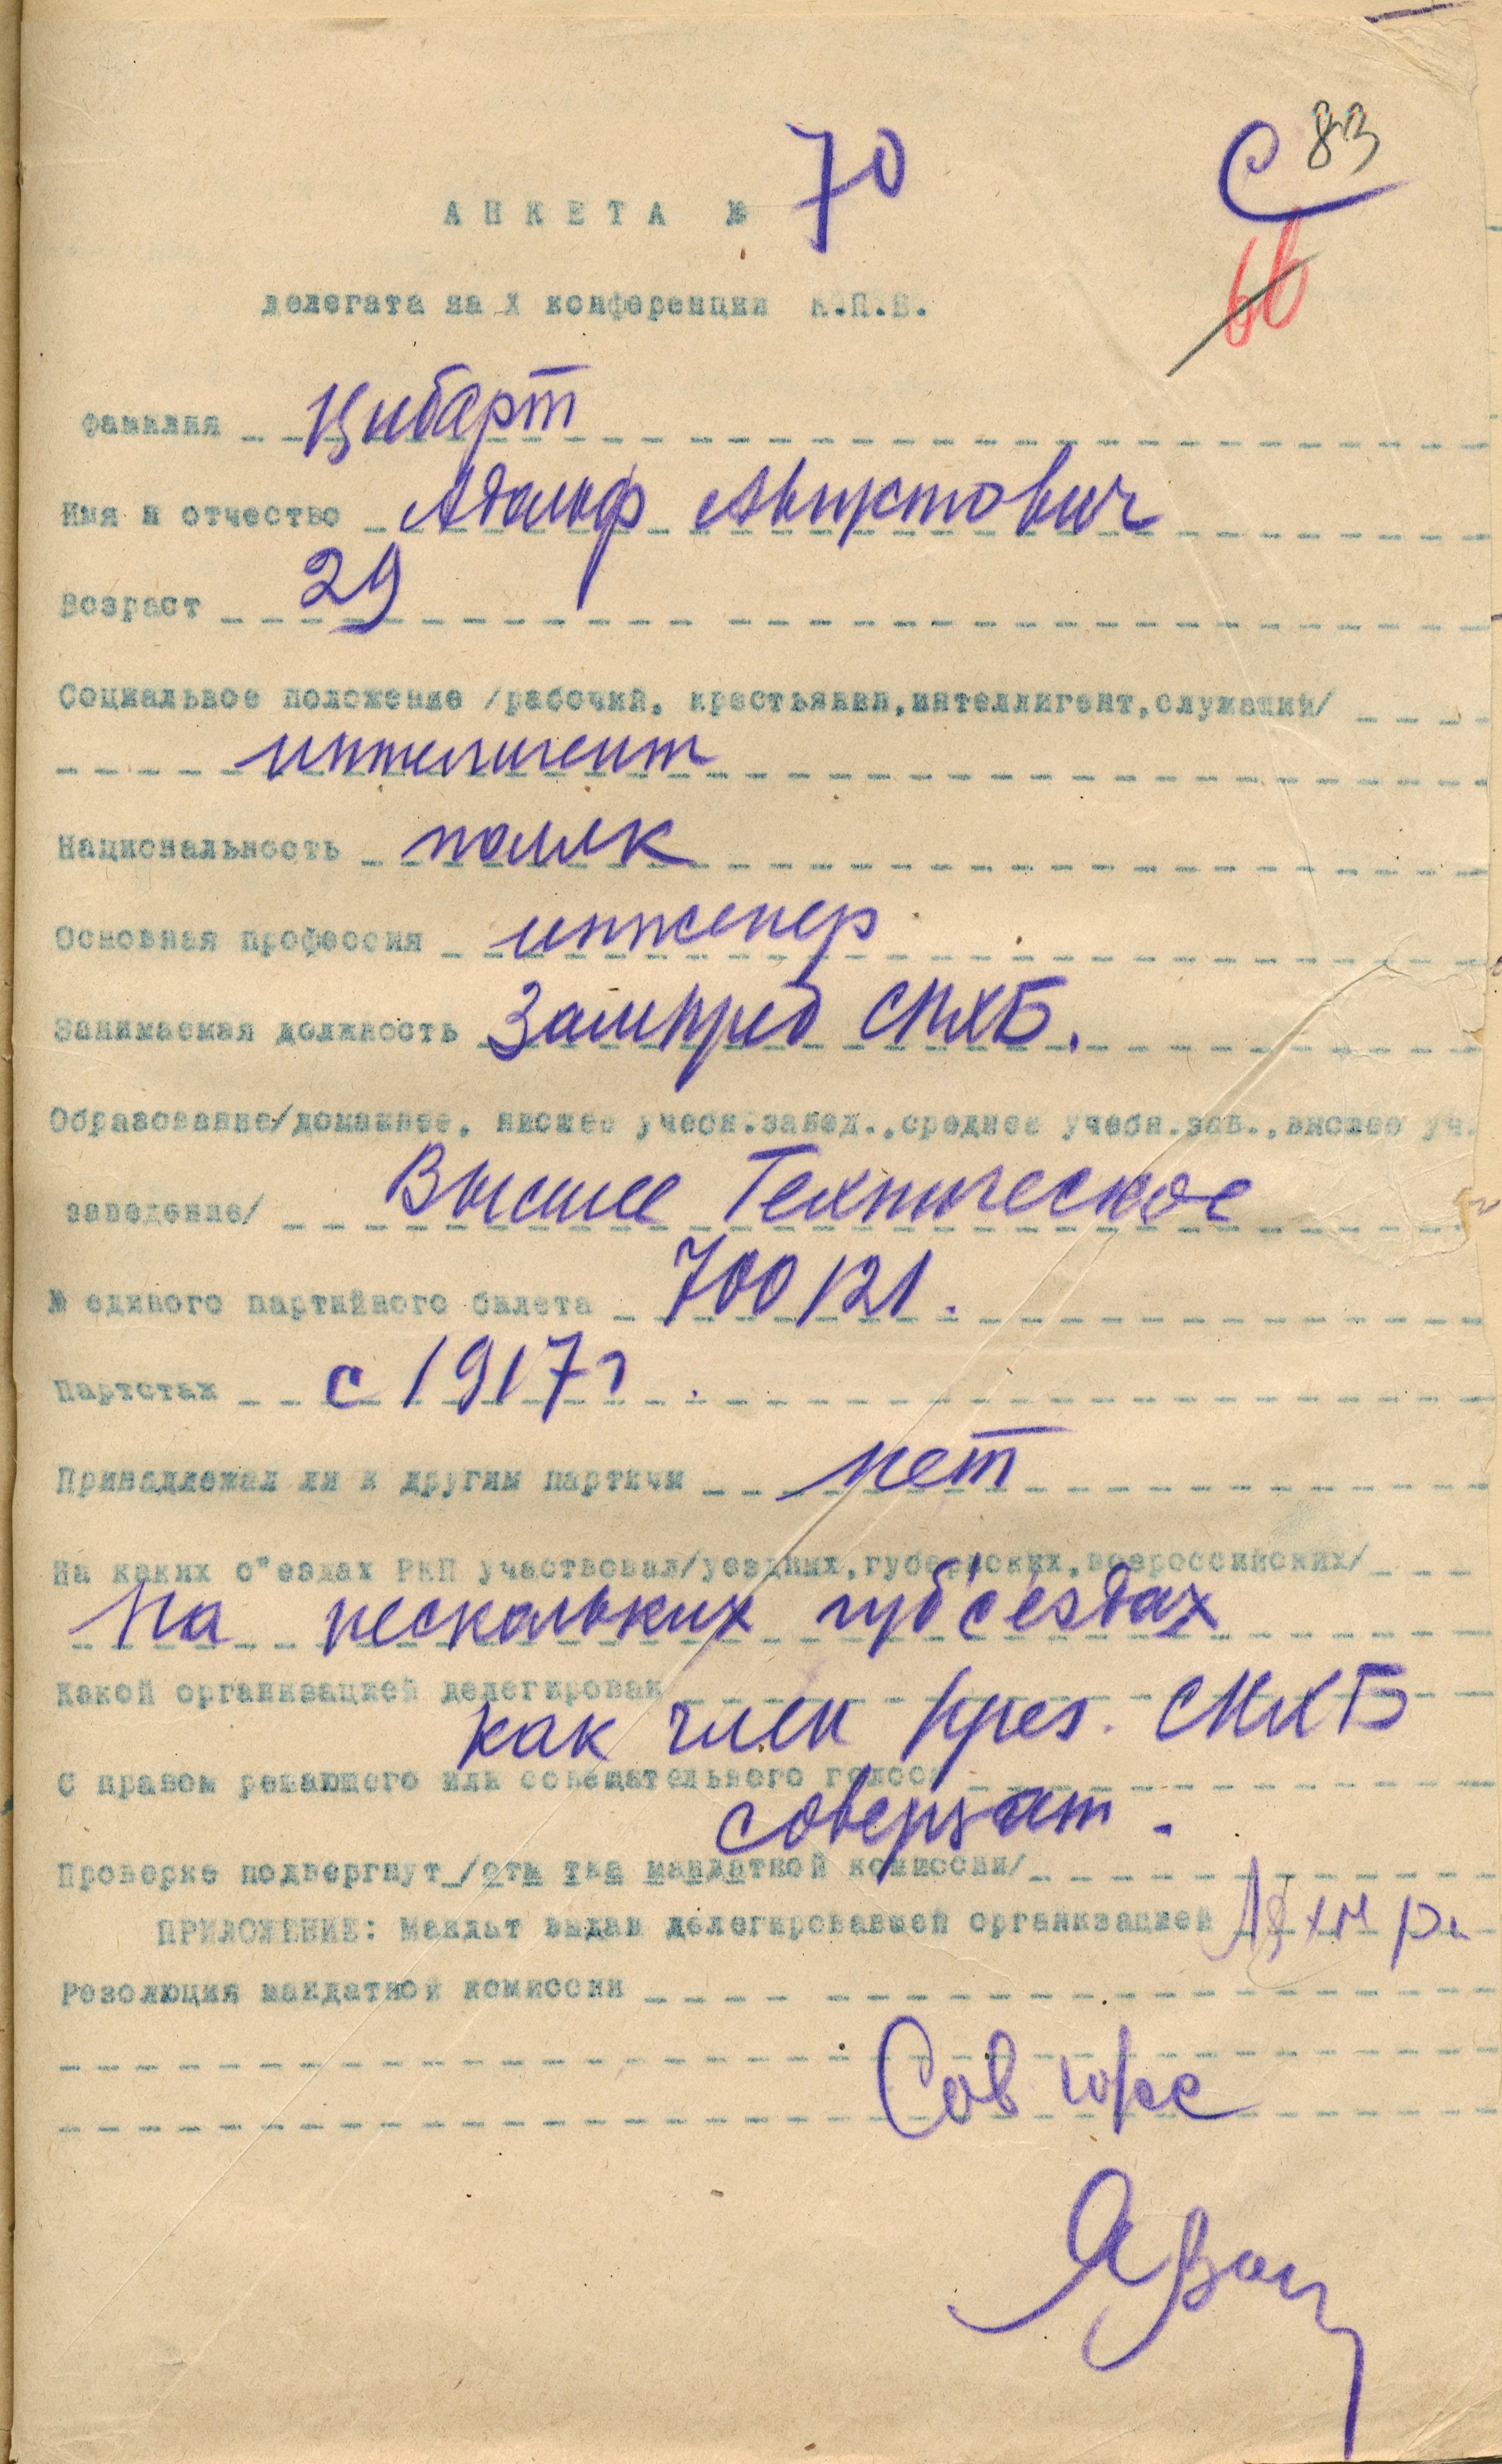 С 83
АНКЕТА № 70
66
делегата на X конференции К.П.Б.
Фамилия Цибарт
Имя и отчество Адольф Августович
Возраст 29
Социальное положение /рабочий, крестьянин,интеллигент,служащий/
интелигент
Национальность поляк
Основная профессия инженер
Занимаемая должность Зампред СНХБ.
Образование/домашнее, низшее учебн.завед.,среднее учебн.зав.,высшее уч.
заведение/ Высшее Техническое
№ единого партийного билета 700121.
Партстаж с 1917 г.
Принадлежал ли к другим партиям нет
На каких с"ездах РКП участвовал/уездных,губернских,всероссийских/
На нескольких губ'сездах
Какой организацией делегирован
как член през. СНХБ
С правом решающего или совещательного голоса
совещат.
Проверке подвергнут /отм тка мандатной комиссии/
ПРИЛОЖЕНИЕ: Мандат выдан делегировавшей организацией
Резолюция мандатной комиссии
Сов